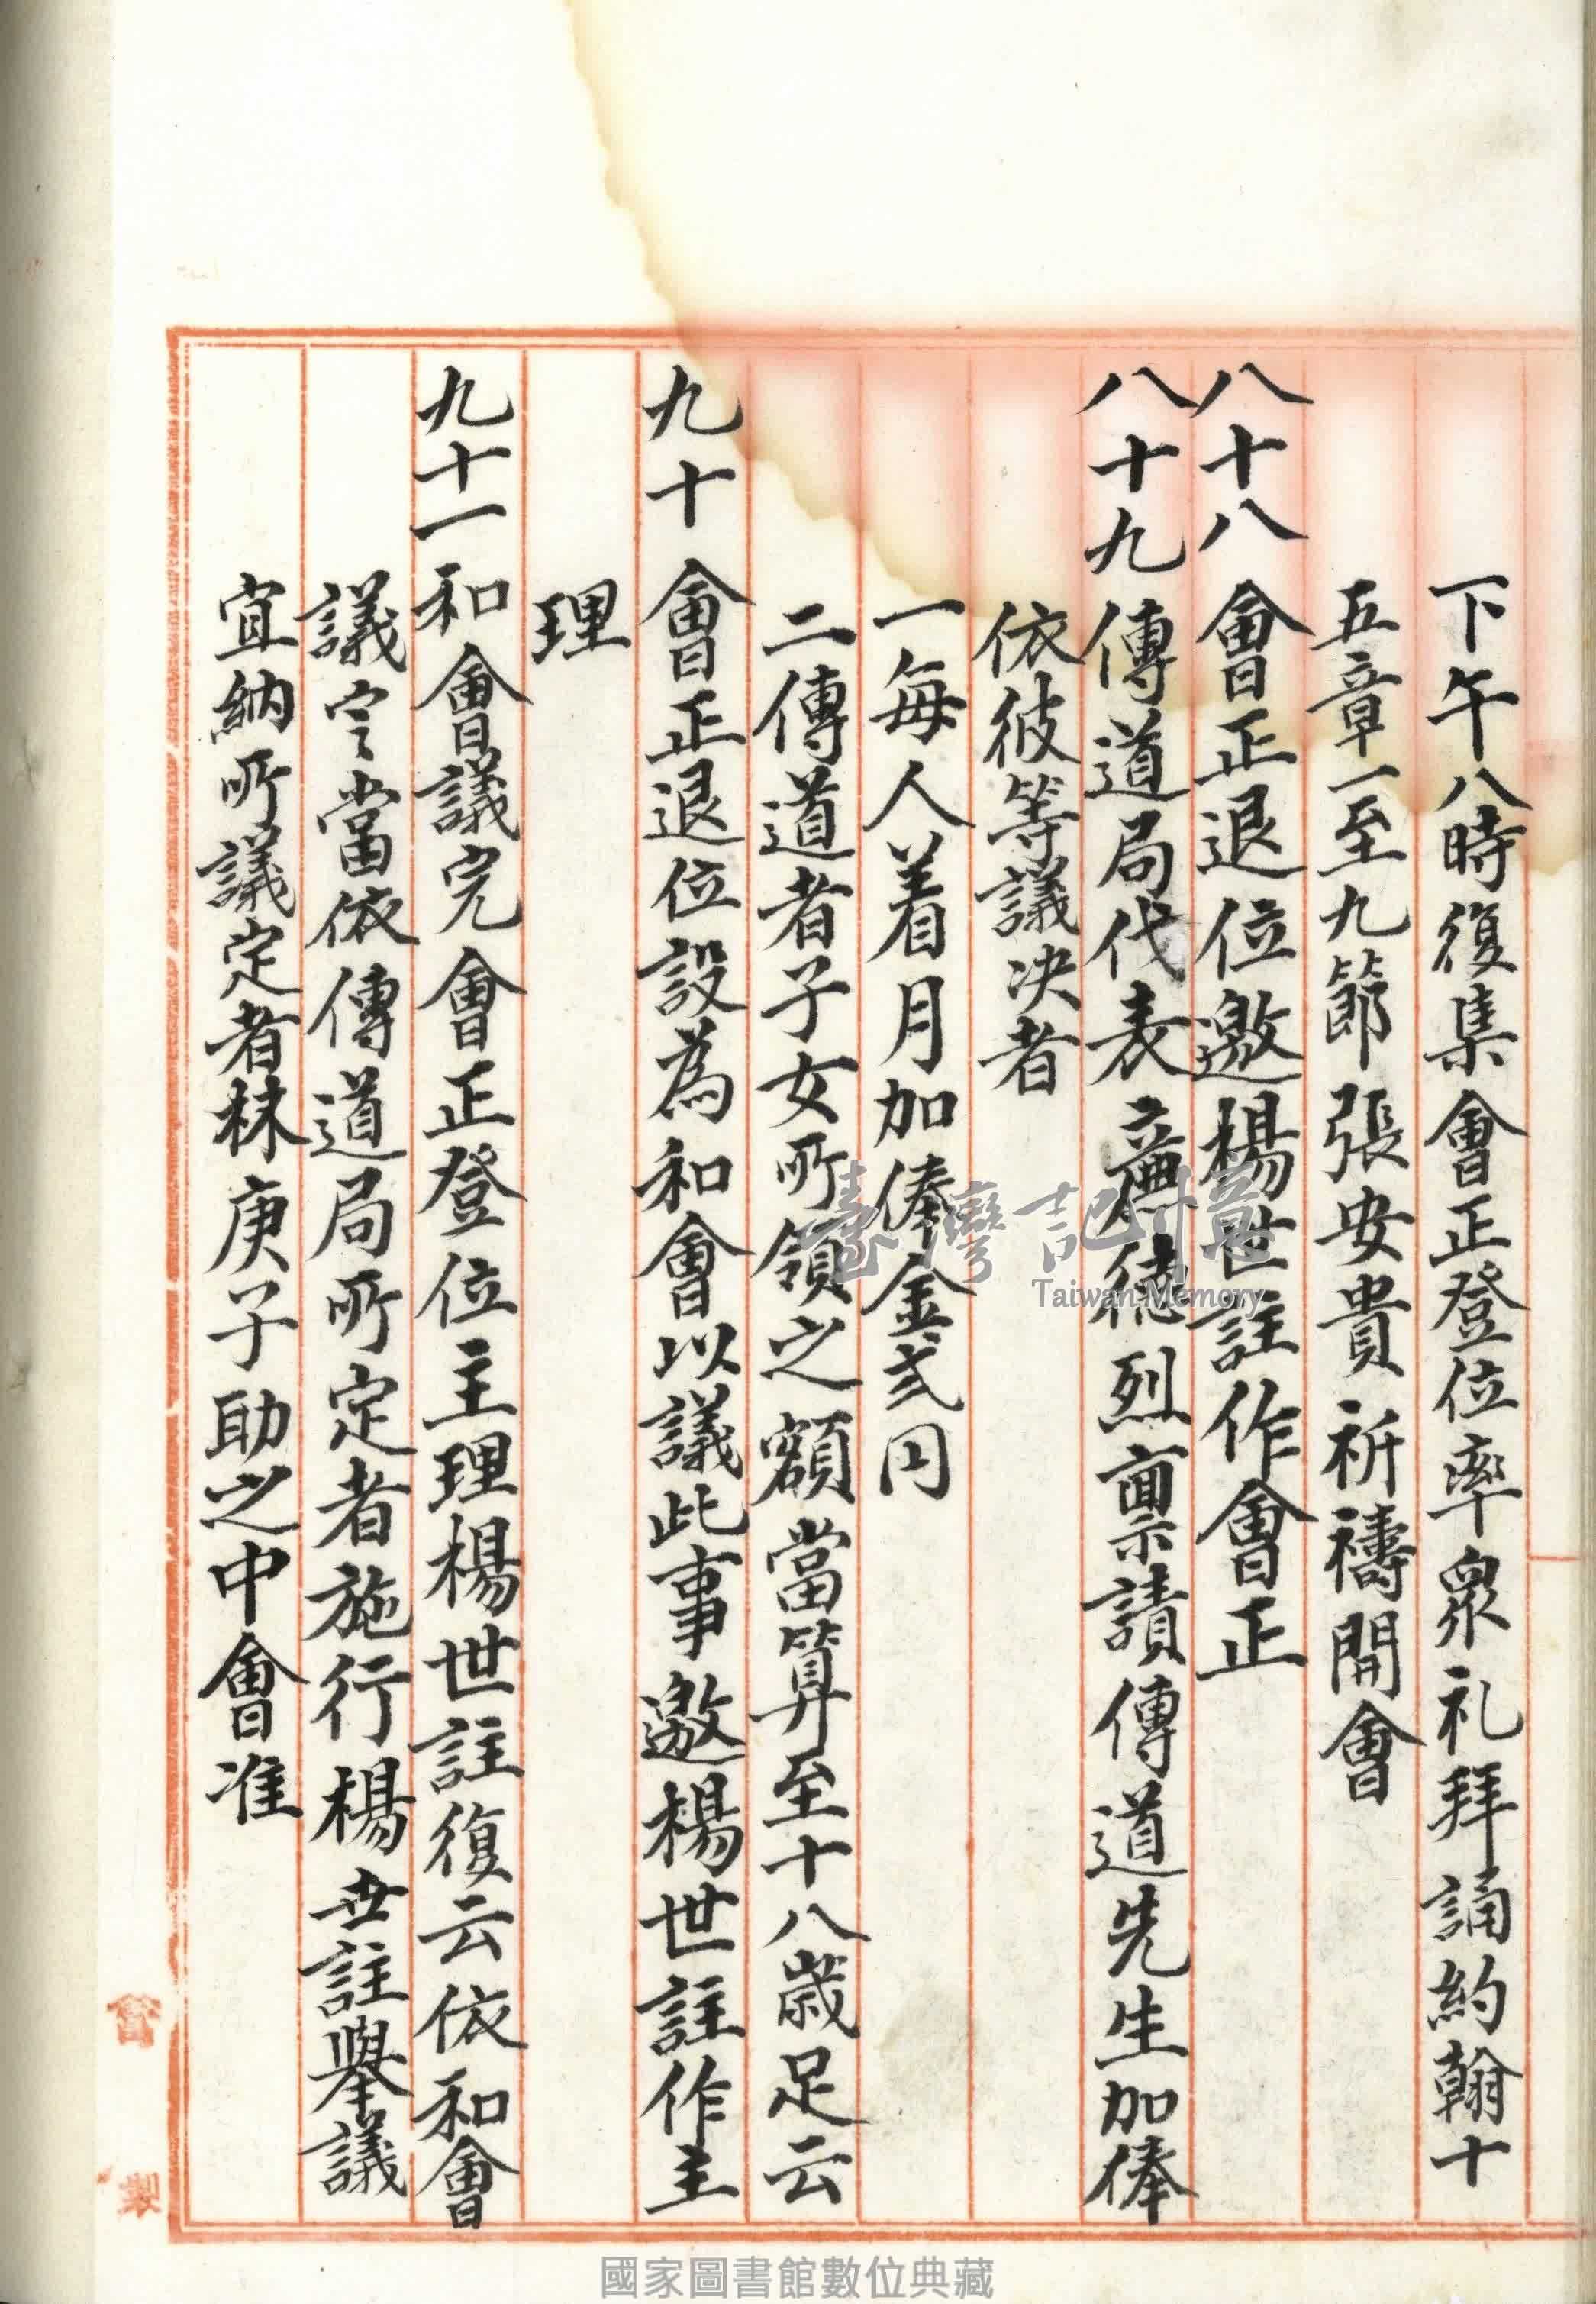 下午八時復集會正登位率眾礼拜誦約翰十
五章一至九節張安貴祈禱開會
八十八會正退位邀楊世註作會正
八十九傳道局代表廉德烈稟請傳道先生加俸
依彼等議决者
一每人着月加俸金弍円
二傳道者子女所領之額當算至十八歲足云
九十會正退位設為和會以議此事邀楊世註作主
理
九十一和會議完會正登位主理楊世註復云依和會
議定當依傳道局所定者施行楊世註舉議
宜納所議定者林庚子助之中會准
會
製
臺灣記憶
Taiwan Memory
國家圖書館數位典藏